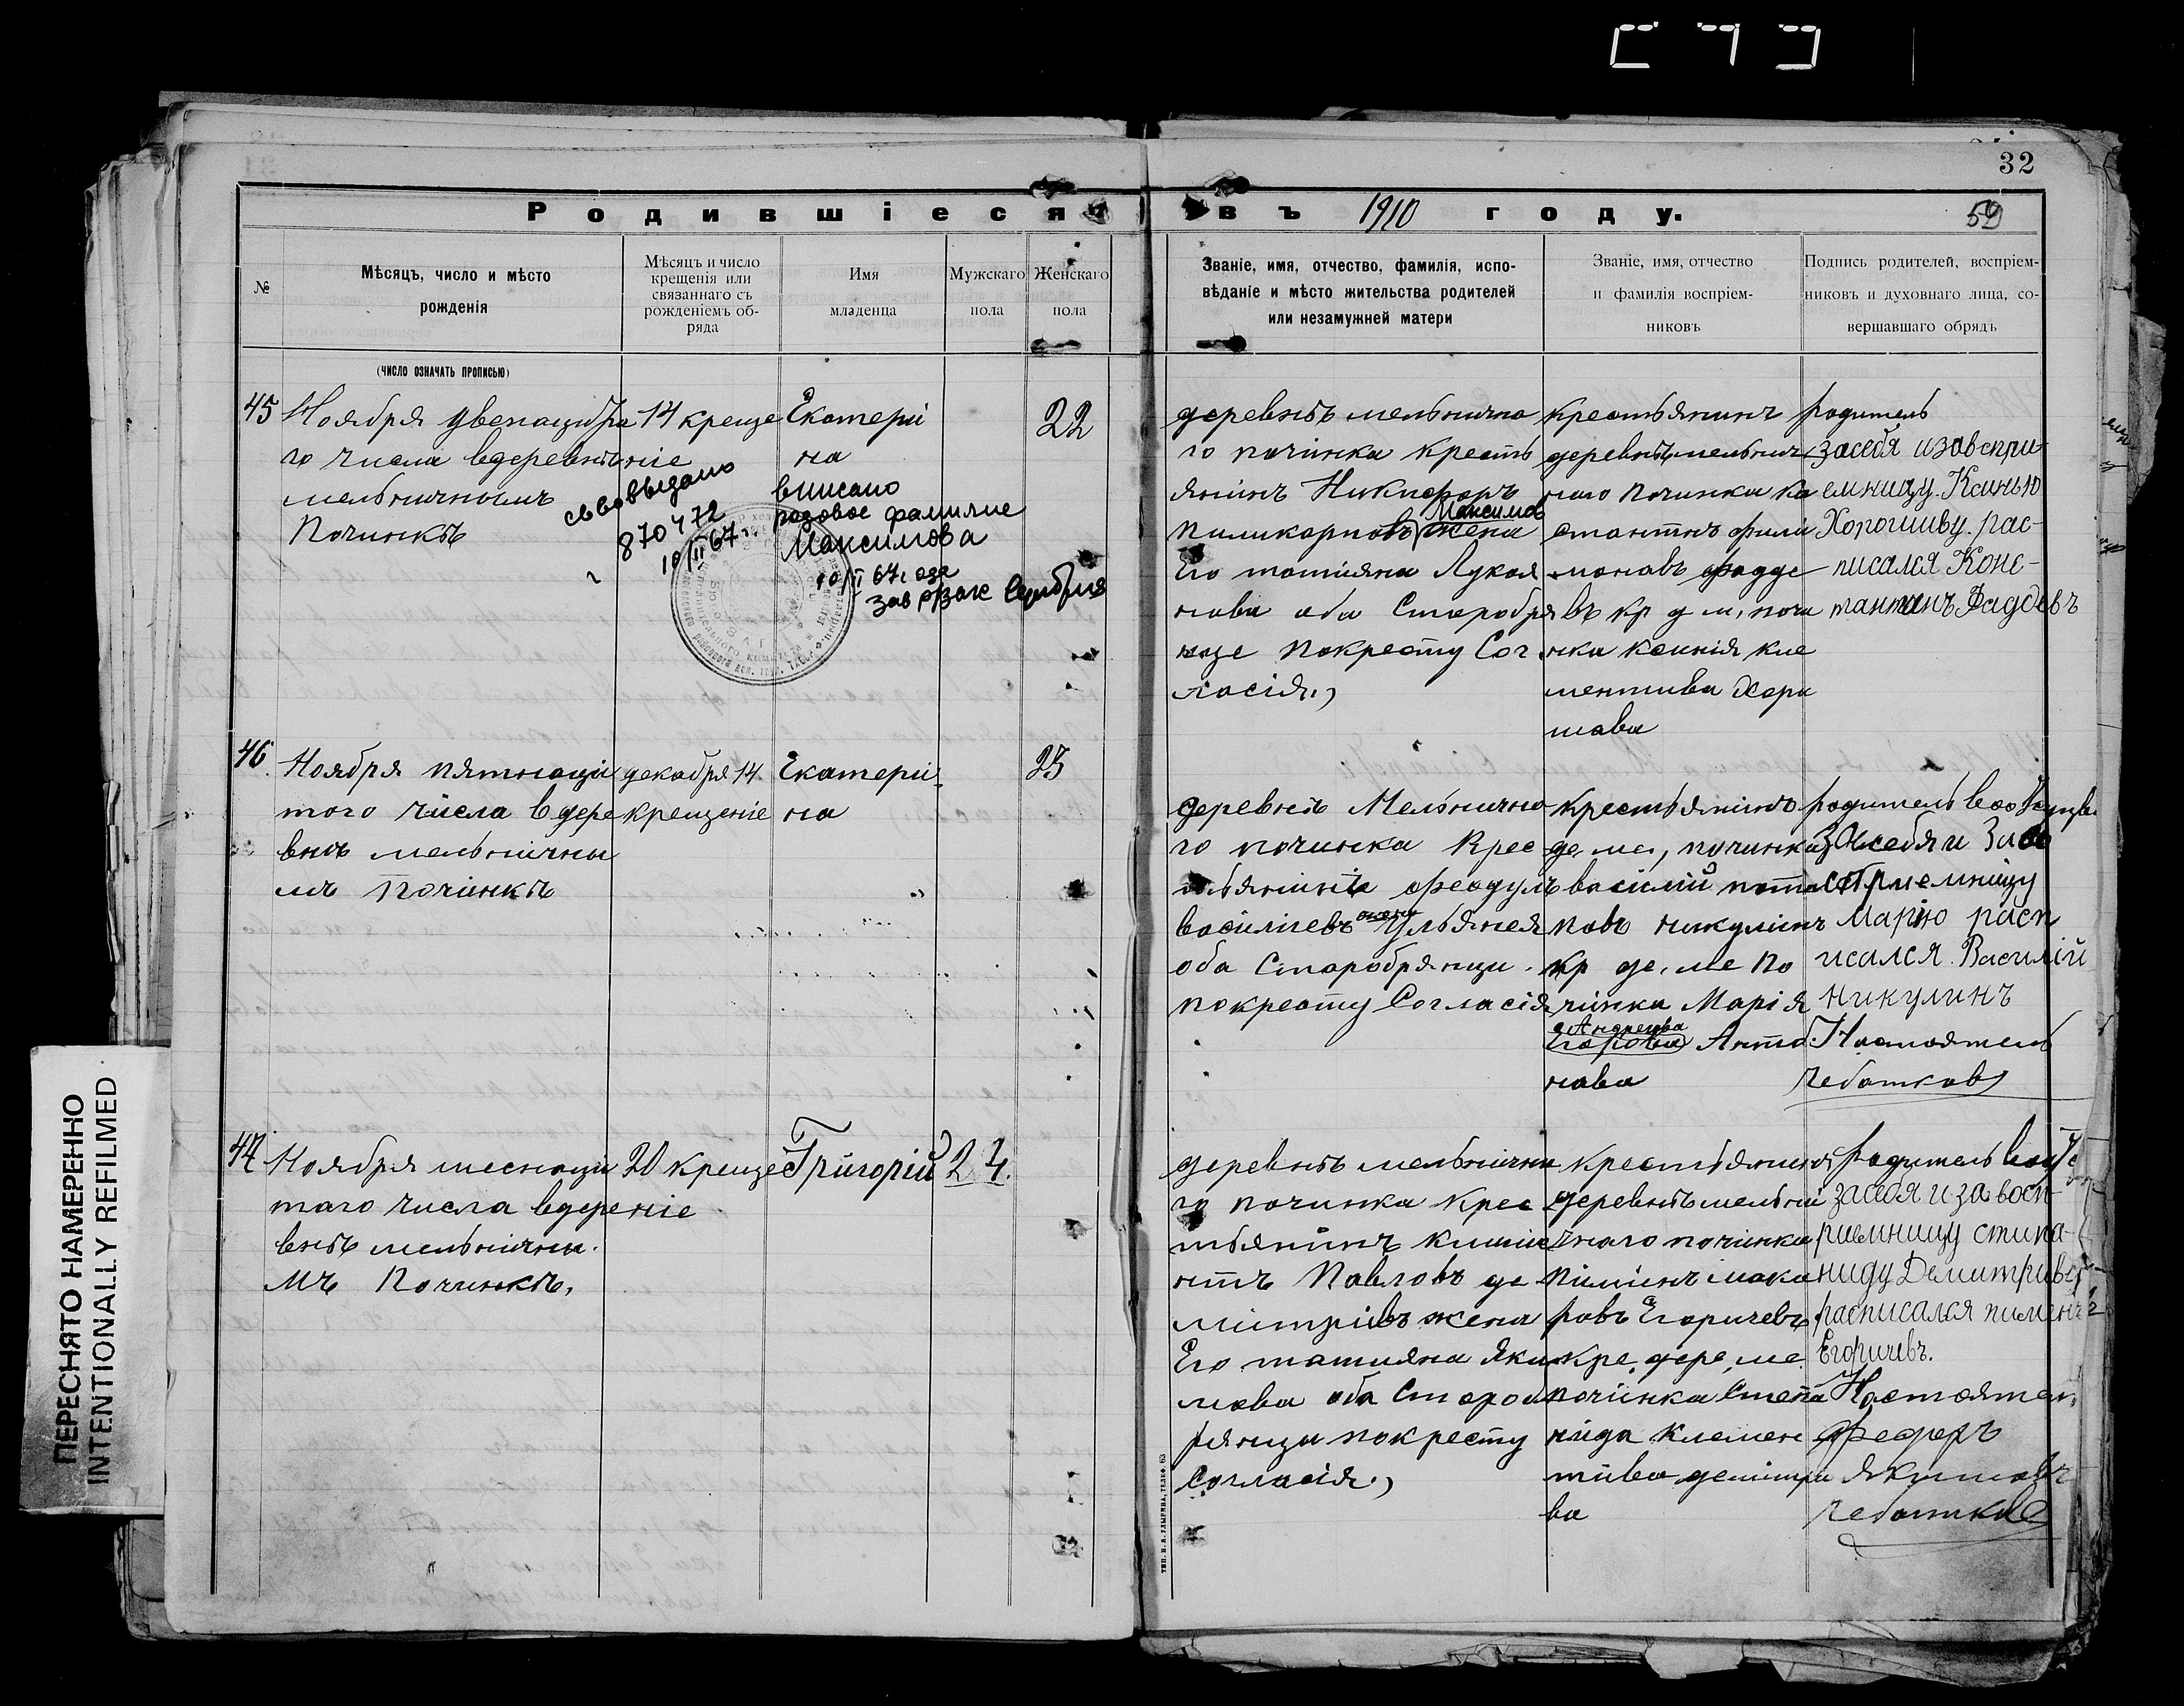 32
Родившіеся въ 1910 году.
59
№
Мѣсяцъ, число и мѣсто
рожденія
(число означать прописью)
Мѣсяцъ и число
крещенія или
связаннаго съ
рожденіемъ об-
ряда
Имя
младенца
Мужскаго
пола
Женскаго
пола
Званіе, имя, отчество, фамилія, испо-
вѣданіе и мѣсто жительства родителей
или незамужней матери
Званіе, имя, отчество
и фамилія воспріем-
никовъ
Подпись родителей, воспріем-
никовъ и духовнаго лица, со-
вершавшаго обрядъ
45
Ноября
го числа вдеревнѣ
мельничнымъ
Починкѣ
14 креще
ніе
870472
10/II 67г.
Екатери
на
вписано
родовое фамилие
Максимова
10/II 67г ода
22
деревнѣ мельнично
го починка кресть
янинъ Никифоръ
Максимов
пиликарповъ жена
Его татияна Лукоя
нова оба Старобря
нце покресту Сог
ласія.
крестьянинъ
деревнѣ мельнич
наго починка ка
стантнъ фили
монавъ фадде
въ кр д м, почи
нка ксинія кле
ментива Хоро
шава
родитель
засебя изавспри
емницу Ксинью
Хорошиву. рас-
писался Конс-
тантинъ Фаддевъ
46
Ноября пятнаци
того числа вдере
внѣ мельничны
мъ починкѣ
декабря 14
крещеніе
Екатери
на
23
деревнѣ Мельнично
го починка Крес
тьянинъ феодулъ
василиевъ жена Ульянея
оба Старобрянци
покресту Согласія
крестьянинъ
де ме, починка
василий
повъ никулинъ
кр де, ме по
чинка Марія
Андреева
Егорова Анто
нава
родитель
засебя и за во
сприемницу
Марію расп
исался. Василій
никулинъ
Настоятель
чеботковъ
47
Ноября шеснаци
таго числа вдере
внѣ мельнични
мъ Починкѣ,
20 креще
ніе
Григорій
24.
деревнѣ мельнични
го починка крес
тьянинъ
Павловъ де
митріевъ жена
Его татияна Яки
мова оба Староо
рянци покресту
Согласія.
крестьянинъ
деревнѣ мельни
чнаго починка
пиминъ мака
ровъ Егоричевъ
кре, дере, ме
починка Степа
нида Клемен
тива демитри
ва
родитель
засебя и за восп
риемницу стипа-
ниду Демитриву
расписался пименъ
Егоричевъ.
Настоятель
Федоръ
Якимовъ
чеботковъ
ТИП. И. Я. УЗЫРИНА, ТЕЛЕФ. 63
ПЕРЕСНЯТО НАМЕРЕННО
INTENTIONALLY REFILMED